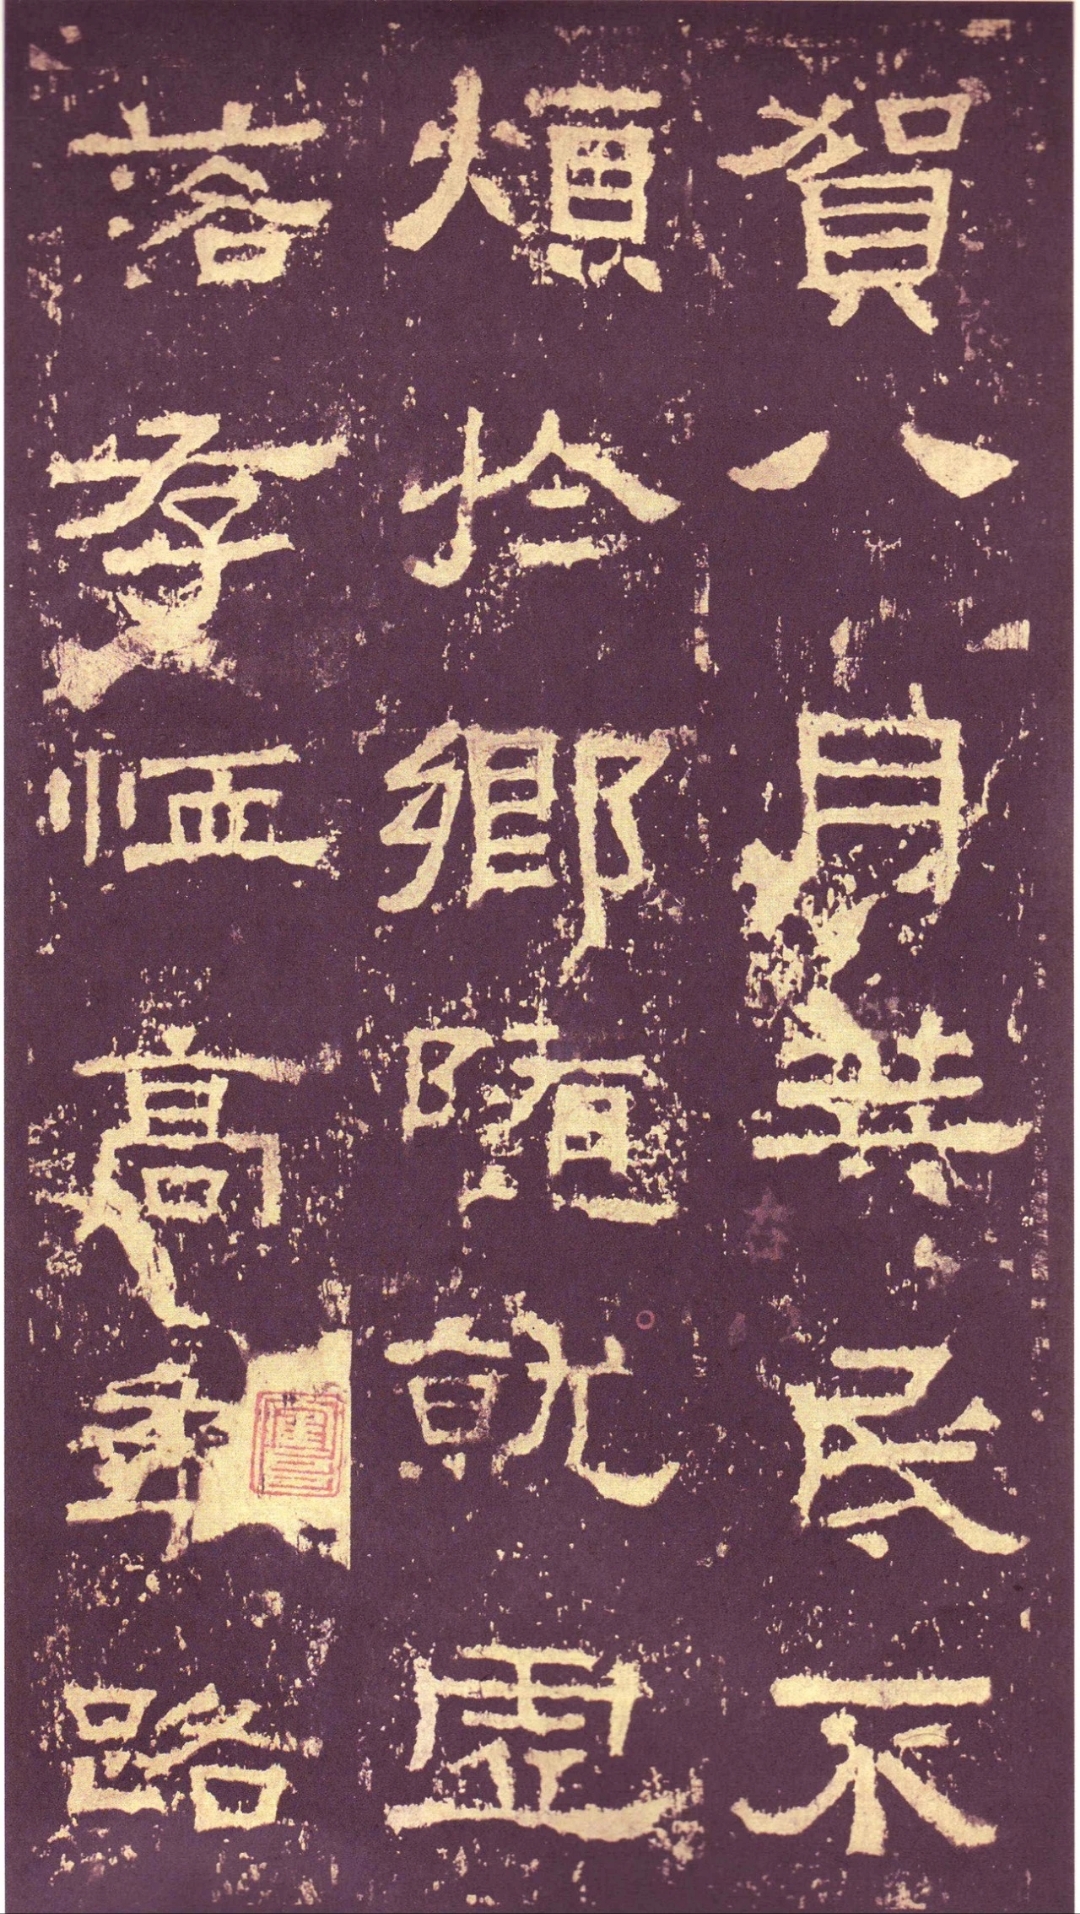 賀八月筭民不
煩於鄉隨就虛
落存恤高年路